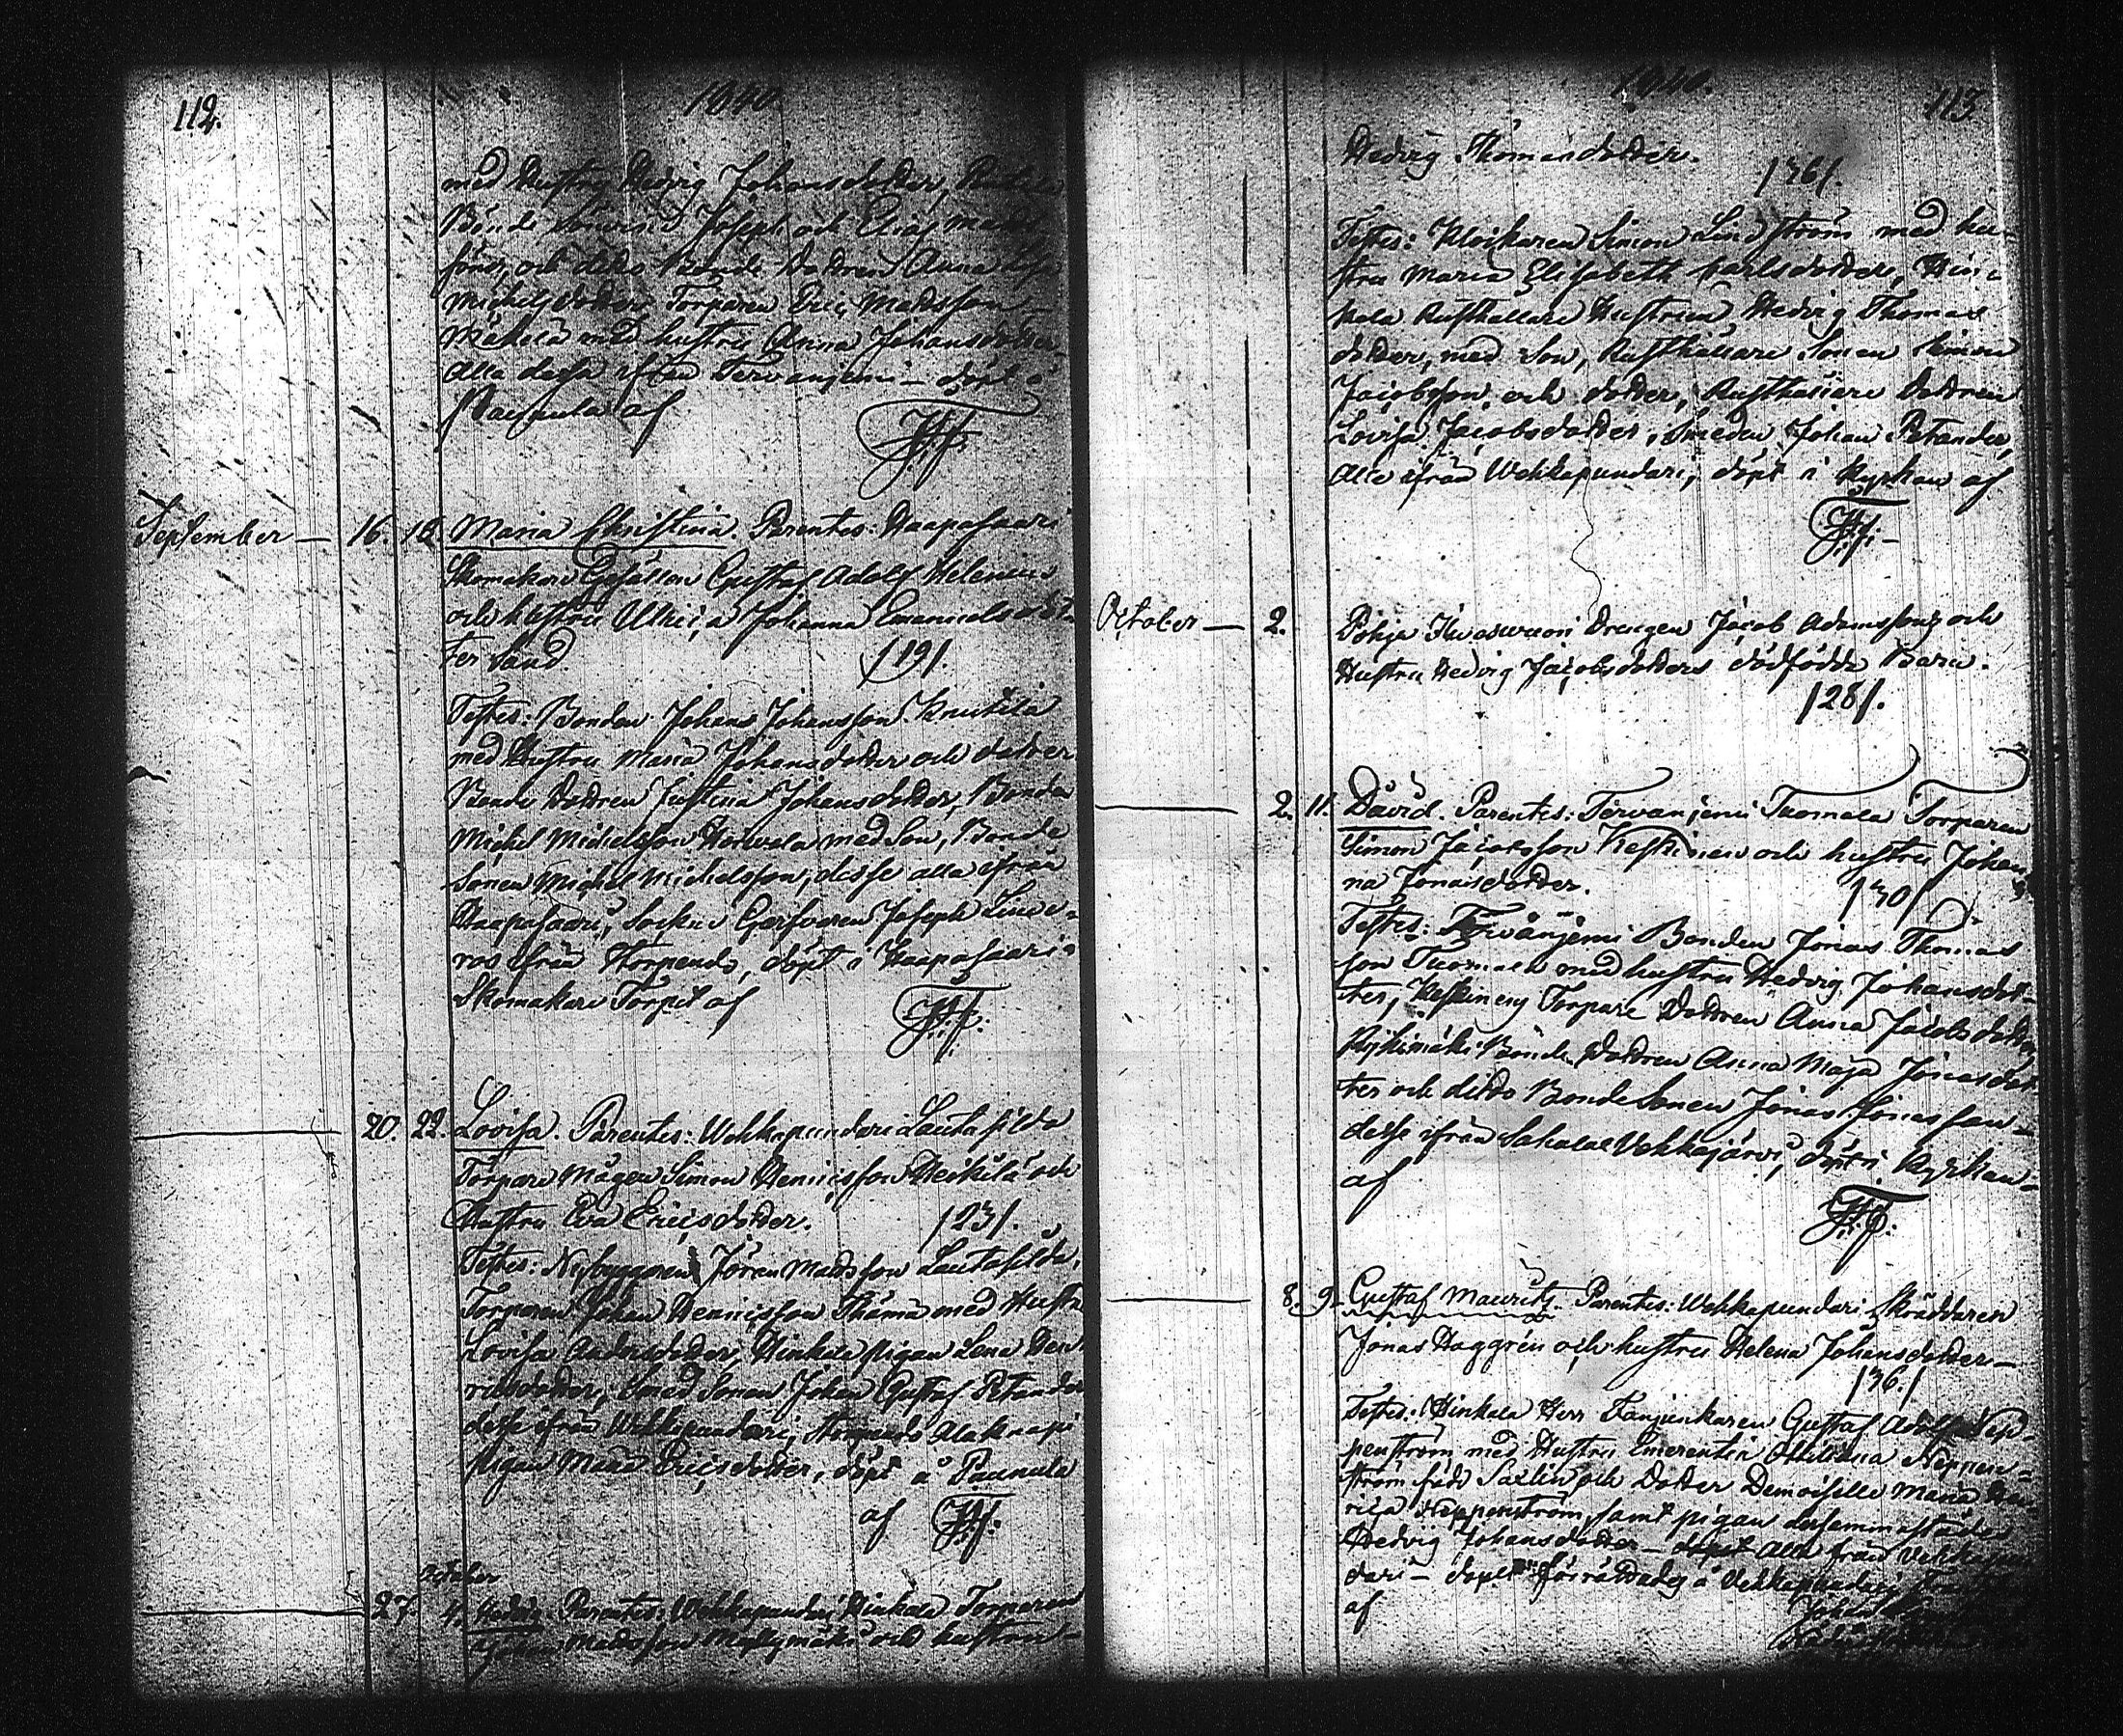 112.
1840.
med Hustru Hedvig Johansdotter,
Bonde Sönerne Joseph och Elias Mads
söner, och ditto Bonde Dottren Anna
Michelsdotter Torparen Eric Madsson
Mäkelä med hustru Anna Johansdotter
alla dessa ifrån Tervanjemi – döpt å
Paunula af
September — 16. 18. Maria Christina. Parentes: Haapasaari
Skomakare Gesällen Gustaf Adolf Helenius
och hustru Ulrica Johanna Emanuelsdot-
ter Sand. /19/.
Testes: Bonden Johan Johansson Knutila
med Hustru Maria Johansdotter och dotter
Bonde Dottren Justina Johansdotter, Bonden
Michel Michelsson Horvala med Son, Bonde
Sonen Michel Michelsson, desse alla ifrån
Haapasaari, Socken Garfvaren Joseph
ros ifrån Horpendo, döpt i Haapasaari
Skomakare Torpet af
20. 22. Lovisa. Parentes: Wehkapundari Lautasilda
Torpare Mågen Simon Henricsson Heikkilä och
Hustru Eva Ericsdotter. /23/.
Testes: Nybyggaren Jöran Madsson Lautasilda,
Torparen Johan Henricsson Thämä med Hustru
Lovisa Andersdotter, Hinkala pigan Lena Hen-
ricsdotter, Smed Sonen Johan Gustaf Petander
desse ifrån Wehkapundari, Horpendo
pigan Maria Ericsdotter, döpt å Paunula
af
October
27. 4. Hedvig. Parentes: Wehkapundari Hinkala Torparen
Johan Madsson Myllymäki och hustru
1840.
113
Hedvig Thomasdotter. /36/.
Testes: Klockaren Simon Lindström med hu-
stru Maria Elisabeth Carlsdotter, Hin-
kala Rusthållare Hustrun Hedvig Thomas
dotter, med Son, Rusthållare Sonen Simon
Jacobsson, och dotter, Rusthållare Dottren
Lovisa Jacobsdotter, Smeden Johan Petander,
alla ifrån Wehkapundari, döpt i Kyrkan af
October — 2. Pohja drengen Jacob Adamssons och
Hustru Hedvig Jacobsdotters dödfödda Barn.
/28/.
2. 11. David. Parentes: Tervanjemi Tuomala Torparen
Simon Jacobsson Keskinen och hustru Johan-
na Jonasdotter. /30/
Testes: Tervanjemi Bonden Jonas Thomas
son Tuomala med hustru Hedvig Johansdot-
ter, Keskinens Torpare Dottren Anna Jacobsdotter
Bonde Dottren Anna Maja Jonasdot-
ter och ditto Bonde Sonen Jonas Jonasson –
desse ifrån Vehkajärvi, döpt i Kyrkan
af
8. 9. Gustaf Mauritz. Parentes: Wehkapundari Skräddaren
Jonas Haggrén och hustru Helena Johansdotter –
/36./
Testes: Hinkala Herr Fanjunkaren Gustaf Adolf Nep
penström med Hustru Emerentia Neppen-
ström född Sarlin och Dotter Demoiselle Maria Hen-
rica Neppenström, samt pigan dersammastädes
Hedvig Johansdotter – alla från Vehkapun
dari – förrättades å Vehkapundari
af
Johan